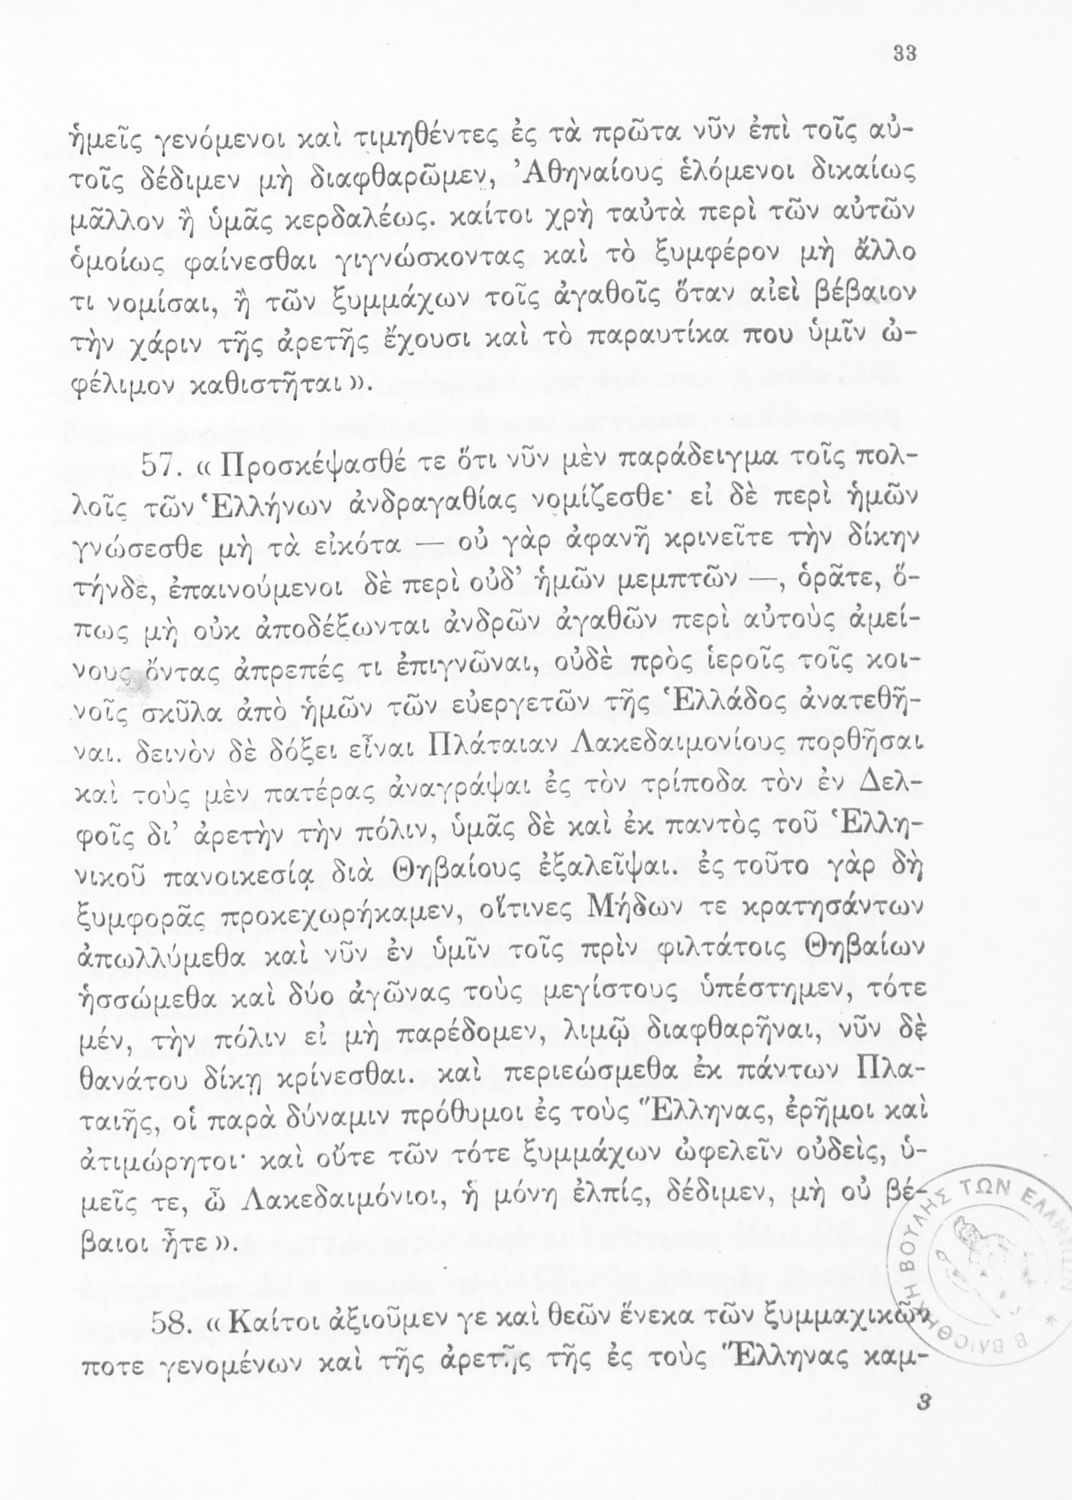 33
ἡμεῖς γενόμενοι καὶ τιμηθέντες ἐς τὰ πρῶτα νῦν ἐπὶ τοῖς αὐ-
τοῖς δέδιμεν μὴ διαφθαρῶμεν, Ἀθηναίους ἑλόμενοι δικαίως
μᾶλλον ἢ ὑμᾶς κερδαλέως. καίτοι χρὴ ταὐτὰ περὶ τῶν αὐτῶν
ὁμοίως φαίνεσθαι γιγνώσκοντας καὶ τὸ ξυμφέρον μὴ ἄλλο
τι νομίσαι, ἢ τῶν ξυμμάχων τοῖς ἀγαθοῖς ὅταν αἰεὶ βέβαιον
τὴν χάριν τῆς ἀρετῆς ἔχουσι καὶ τὸ παραυτίκα που ὑμῖν ὠ-
φέλιμον καθιστῆται».
57. «Προσκέψασθέ τε ὅτι νῦν μὲν παράδειγμα τοῖς πολ-
λοῖς τῶν Ἑλλήνων ἀνδραγαθίας νομίζεσθε· εἰ δὲ περὶ ἡμῶν
γνώσεσθε μὴ τὰ εἰκότα — οὐ γὰρ ἀφανῆ κρινεῖτε τὴν δίκην
τήνδε, ἐπαινούμενοι δὲ περὶ οὐδ’ ἡμῶν μεμπτῶν —, ὁρᾶτε, ὅ-
πως μὴ οὐκ ἀποδέξωνται ἀνδρῶν ἀγαθῶν περὶ αὐτοὺς ἀμεί-
νους ὄντας ἀπρεπές τι ἐπιγνῶναι, οὐδὲ πρὸς ἱεροῖς τοῖς κοι-
νοῖς σκῦλα ἀπὸ ἡμῶν τῶν εὐεργετῶν τῆς Ἑλλάδος ἀνατεθῆ-
ναι. δεινὸν δὲ δόξει εἶναι Πλάταιαν Λακεδαιμονίους πορθῆσαι
καὶ τοὺς μὲν πατέρας ἀναγράψαι ἐς τὸν τρίποδα τὸν ἐν Δελ-
φοῖς δι’ ἀρετὴν τὴν πόλιν, ὑμᾶς δὲ καὶ ἐκ παντὸς τοῦ Ἑλλη-
νικοῦ πανοικεσίᾳ διὰ Θηβαίους ἐξαλεῖψαι. ἐς τοῦτο γὰρ δὴ
ξυμφορᾶς προκεχωρήκαμεν, οἵτινες Μήδων τε κρατησάντων
ἀπωλλύμεθα καὶ νῦν ἐν ὑμῖν τοῖς πρὶν φιλτάτοις Θηβαίων
ἡσσώμεθα καὶ δύο ἀγῶνας τοὺς μεγίστους ὑπέστημεν, τότε
μέν, τὴν πόλιν εἰ μὴ παρέδομεν, λιμῷ διαφθαρῆναι, νῦν δὲ
θανάτου δίκῃ κρίνεσθαι. καὶ περιεώσμεθα ἐκ πάντων Πλα-
ταιῆς, οἱ παρὰ δύναμιν πρόθυμοι ἐς τοὺς Ἕλληνας, ἐρῆμοι καὶ
ἀτιμώρητοι· καὶ οὔτε τῶν τότε ξυμμάχων ὠφελεῖν οὐδεὶς, ὑ-
μεῖς τε, ὦ Λακεδαιμόνιοι, ἡ μόνη ἐλπίς, δέδιμεν, μὴ οὐ βέ-
βαιοι ἦτε».
58. «Καίτοι ἀξιοῦμεν γε καὶ θεῶν ἕνεκα τῶν ξυμμαχικῶν
ποτε γενομένων καὶ τῆς ἀρετῆς τῆς ἐς τοὺς Ἕλληνας καμ-
3
ΒΙΒΛΙΟΘΗΚΗ ΒΟΥΛΗΣ ΤΩΝ ΕΛΛΗΝΩΝ